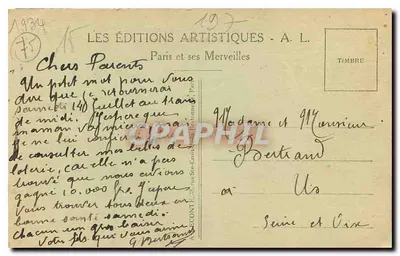 1934
75
15
197
LES ÉDITIONS ARTISTIQUES - A. L.
Paris et ses Merveilles
TIMBRE
Chers Parents
Un petit mot pour vous
dire que je retournerai
samedi 14 Juillet au train
de midi. J'espère que
maman
je ne lui
de consulter mes billets de
loterie, car elle n'a pas
trouvé que nous avions
gagné 10.000 frs. J'espère
vous trouver tous deux en
bonne santé samedi.
Chacun un gros baiser
Votre fils qui vous aime
G Bertrand
Madame et Monsieur
Bertrand
à Us
Seine et Oise
CPARAMA